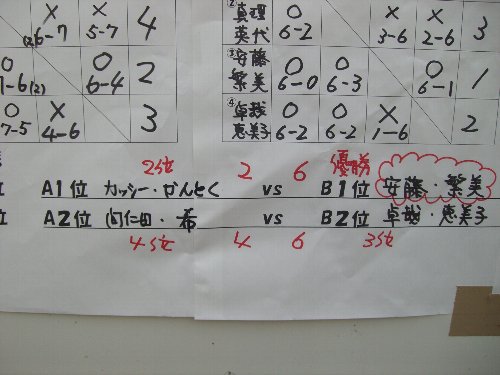 × × 4
6-7 5-7
○ 2
7-6(2) 6-4
○ × 3
7-5 4-6
②真理 ○ × × 3
英代 6-2 3-6 2-6
③安藤 ○ ○ ○ 1
繁美 6-0 6-3 6-1
④卓哉 ○ ○ × 2
恵美子 6-2 6-2 1-6
2位 2 6 優勝
位 A1位 カッシー・かんとく vs B1位 安藤・繁美
位 A2位 内仁田・希 vs B2位 卓哉・恵美子
4位 4 6 3位